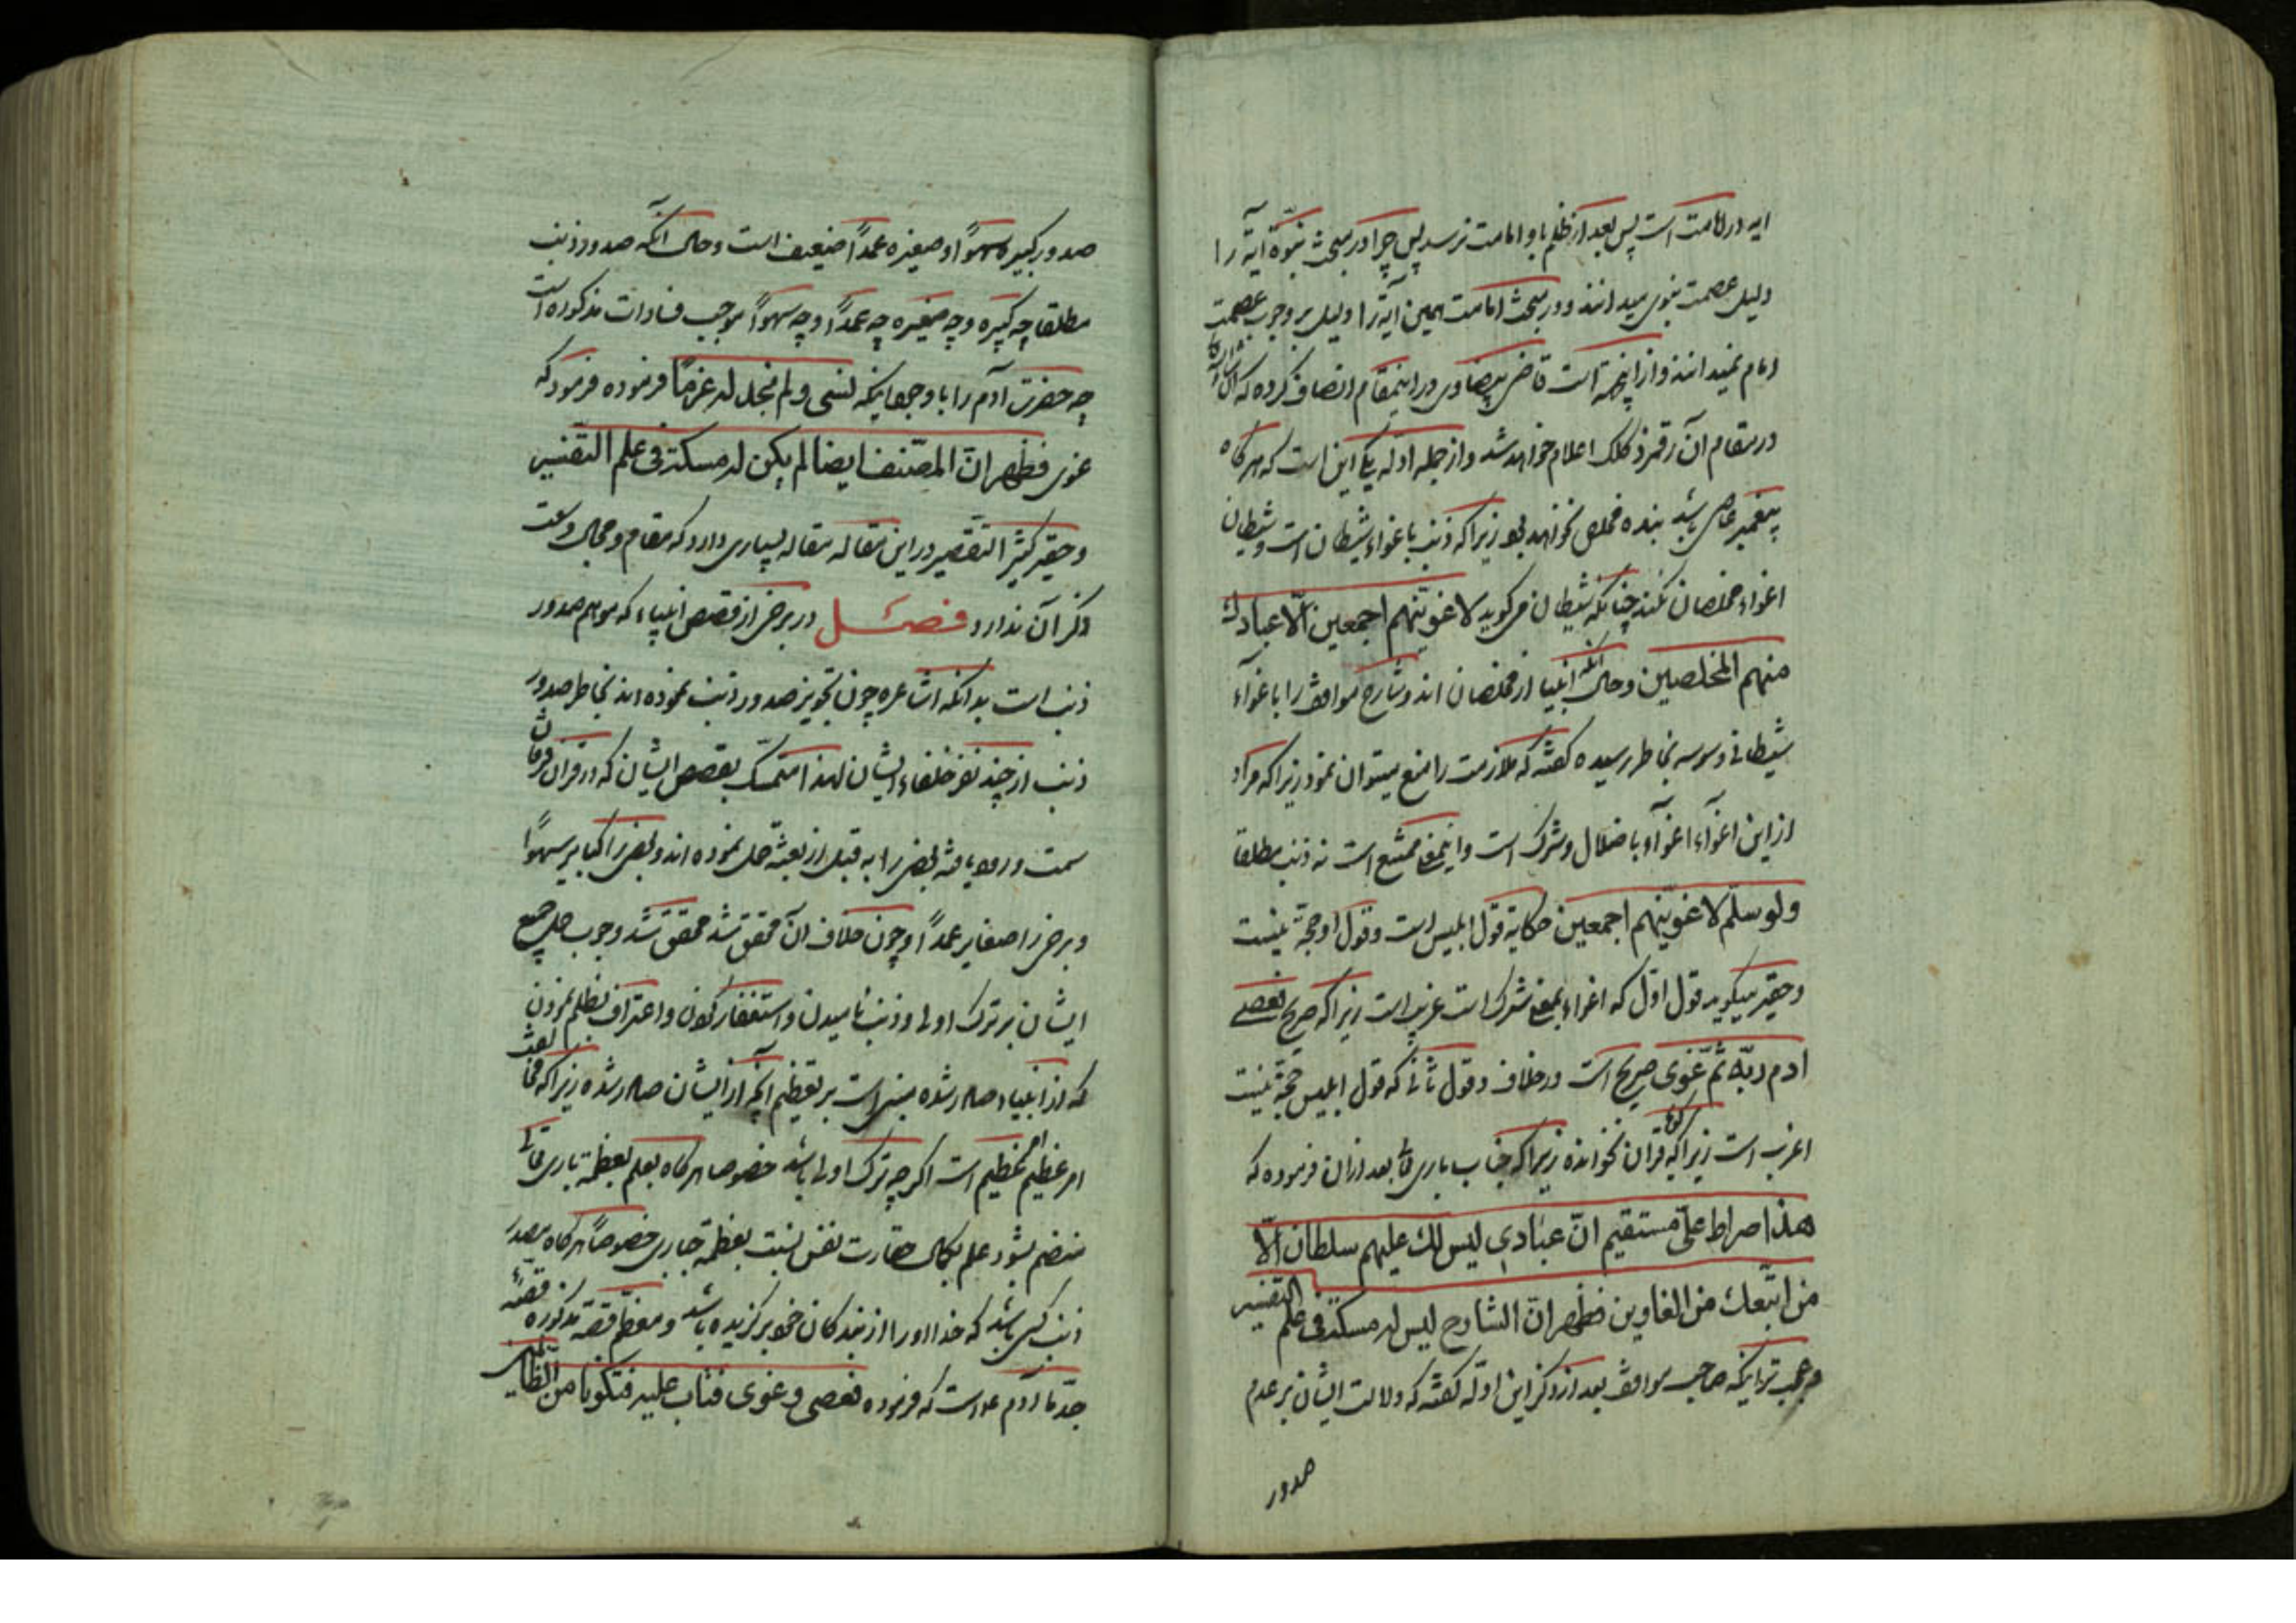 ایه در امامت است پس بعد از ظلم باو امامت نرسد پس چرا در مبحث نبوّة آیة را
دلیل عصمت نبوی میدانند و در مبحث امامت همین آیة را دلیل بر وجوب عصمت
امام نمیدانند و از اینجهة است قاضی بیضاوی در اینمقام انصاف کرده که
در مقام آن رقمزد کلک اعلام خواهد شد و از جمله ادلّه یکی این است که هرکاه
پیغمبر عاصی باشد بنده مخلص نخواهد بود زیرا که ذنب باغواء شیطان است و شیطان
اغواء مخلصان نکند چنانکه شیطان می کوید لاغوینّهم اجمعین الّا عبادك
منهم المخلصین و حال آنکه انبیا از مخلصان اند و شارح مواقف را باغواء
شیطانی وسوسه بخاطر رسیده کفته که ملازمت را منع میتوان نمود زیرا که مراد
از این اغوآء اغوآء باضلال و شرک است و اینمعنی ممتنع است نه ذنب مطلقا
ولو سلّم لاغوینّهم اجمعین حکایة قول ابلیس است و قول او حجّة نیست
و حقیر میکوید قول اوّل که اغواء بمعنی شرک است غریب است زیرا که صریح فعصی
ادم ربّه ثمّ غوی صریح است در خلاف و قول ثانی که قول ابلیس حجّة نیست
اغرب است زیرا که قرآن نخوانده زیرا که جناب باری تعالی بعد از ان فرموده که
هذا صراط علیّ مستقیم انّ عبادی لیس لك علیهم سلطان الّا
من اتّبعك من الغاوین فظهر انّ الشارح لیس له مسکة فی علم التفسیر
و عجب تر اینکه صاحب مواقف بعد از ذکر این ادلّه کفته که دلالت ایشان بر عدم
صدور
صدور کبیره سهوًا و صغیره عمدًا ضعیف است و حال آنکه صدور ذنب
مطلقا چه کبیره و چه صغیره چه عمدًا و چه سهوًا موجب فسادات مذکوره است
چه حضرت آدم را با وجود اینکه فنسی و لم نجد له عزمًا فرموده فرمود که
غوی فظهر انّ المصنّف ایضا لم یکن له مسکة فی علم التفسیر
و حقیر کثیر التقصیر در این مقاله مقاله بسیاری دارد که مقام و مجال وسعت
ذکر آن ندارد فصل در برخی از قصص انبیاء که موهم صدور
ذنب است بدانکه اشاعره چون تجویز صدور ذنب نموده اند بخاطر صدور
ذنب از چند نفر خلفاء ایشان لهذا متمسّک بقصص ایشان که در قران فرقان
سمت ورود یافته بعضی را به قبل از بعثة حمل نموده اند و بعضی را کبایر سهوًا
و برخی را صغایر عمدًا و چون خلاف آن محقق شد محقق شد وجوب حمل جمیع
ایشان بر ترک اولی و ذنب نامیدن و استغفار کردن و اعتراف بظلم نمودن
که از انبیاء صادر شده مبنی است بر تعظیم آنچه از ایشان صادر شده زیرا که مخالفت
امر عظیم عظیم است اکرچه ترک اولی باشد خصوصا هرکاه بعلم بعظمة باری تعالی
منضم بشود علم بکمال حقارت نفس نسبت بعظمة جباری خصوصًا هرکاه مصدر
ذنب کسی باشد که خدا او را از بندکان خود برکزیده باشد و معظم قصّه مذکوره قصّه
جدّ ما آدم است که فرموده فعصی و غوی فتاب علیه فتکونا من الظالمین